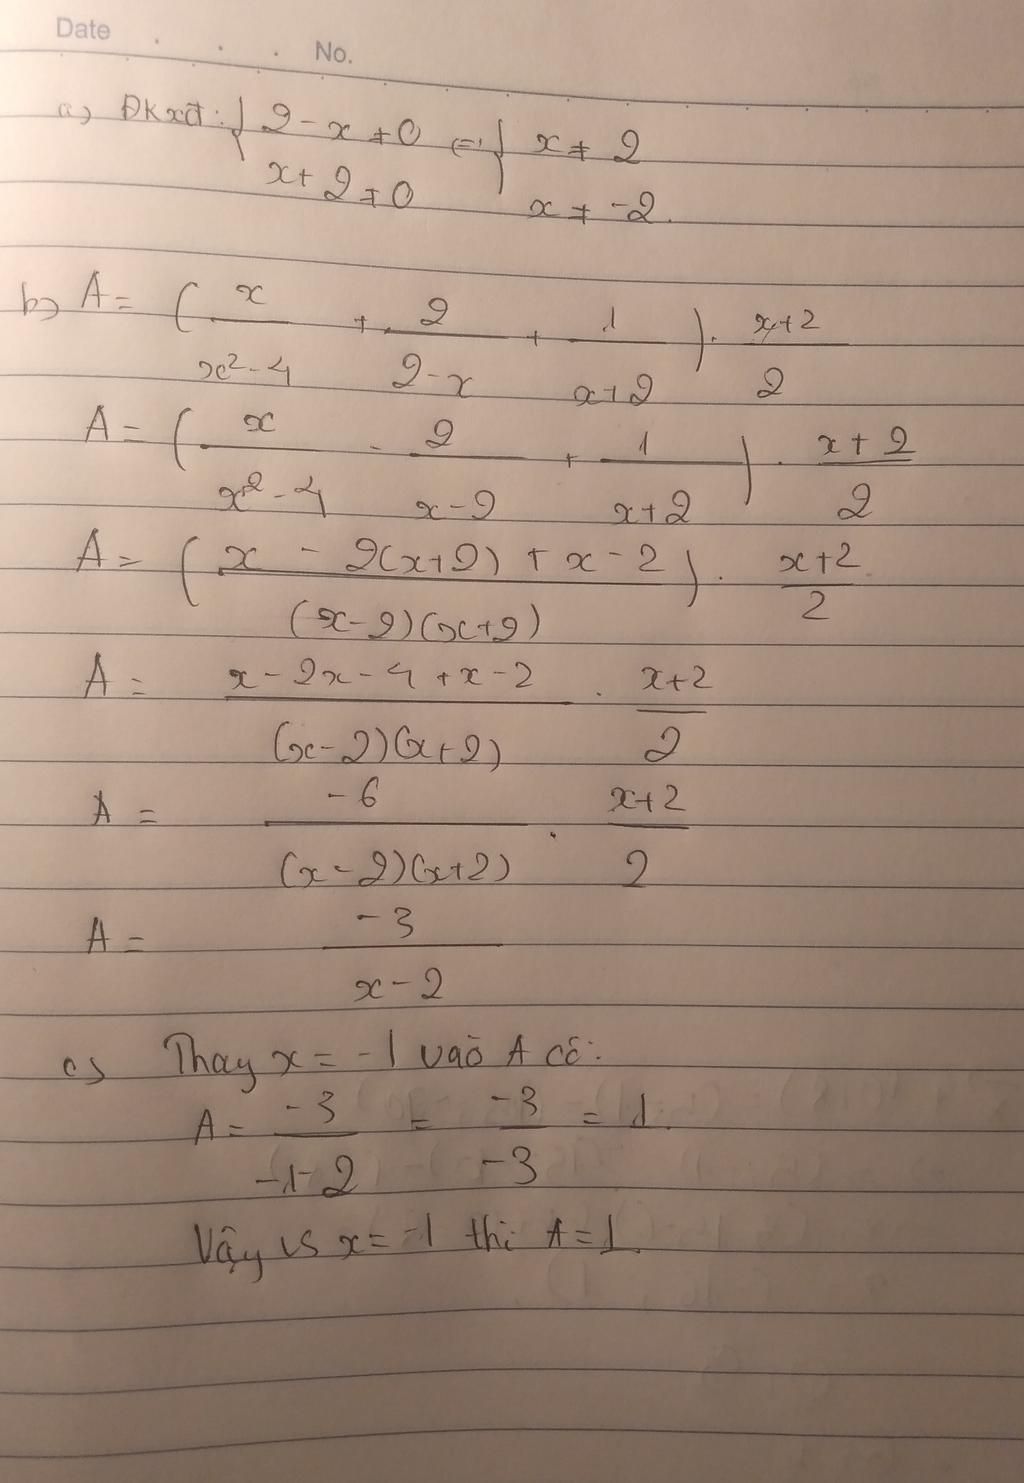 Date . . . No.
a) ĐKxđ: { 2 - x ≠ 0 <=> { x ≠ 2
x + 2 ≠ 0 x ≠ -2.
b) A = ( x/(x² - 4) + 2/(2 - x) + 1/(x + 2) ) . (x + 2)/2
A = ( x/(x² - 4) - 2/(x - 2) + 1/(x + 2) ) . (x + 2)/2
A = ( (x - 2(x + 2) + x - 2)/((x - 2)(x + 2)) ) . (x + 2)/2
A = (x - 2x - 4 + x - 2)/((x - 2)(x + 2)) . (x + 2)/2
A = -6/((x - 2)(x + 2)) . (x + 2)/2
A = -3/(x - 2)
c) Thay x = -1 vào A có:
A = -3/(-1 - 2) = -3/-3 = 1.
Vậy vs x = -1 thì A = 1